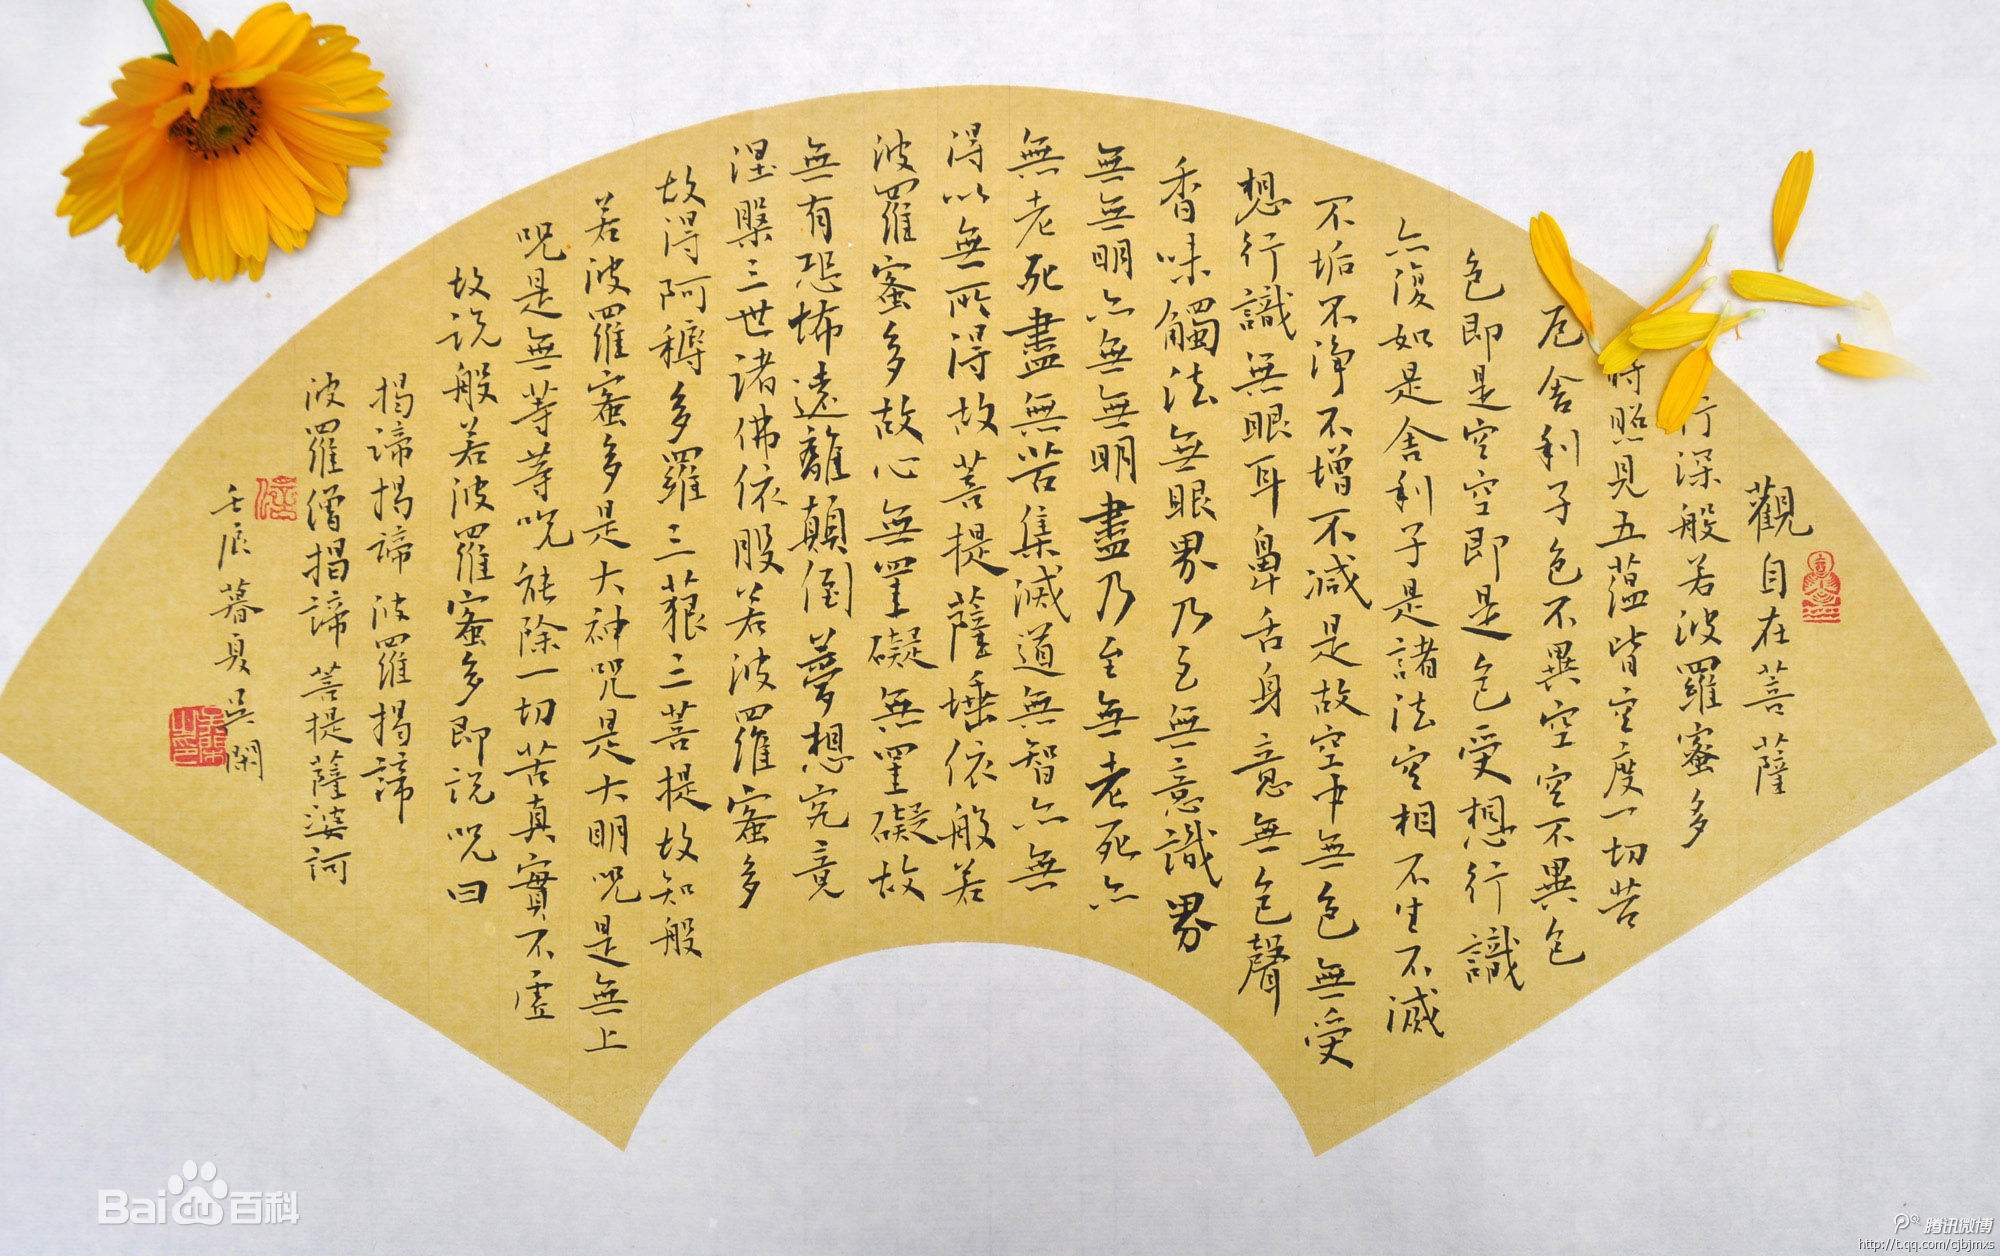 觀自在菩薩
行深般若波羅蜜多
時照見五蕴皆空度一切苦
厄舍利子色不異空空不異色
色即是空空即是色受想行識
亦復如是舍利子是諸法空相不生不滅
不垢不淨不增不減是故空中無色無受
想行識無眼耳鼻舌身意無色聲
香味觸法無眼界乃至無意識界
無無明亦無無明盡乃至無老死亦
無老死盡無苦集滅道無智亦無
得以無所得故菩提薩埵依般若
波羅蜜多故心無罣礙無罣礙故
無有恐怖遠離顛倒夢想究竟
涅槃三世諸佛依般若波羅蜜多
故得阿耨多羅三藐三菩提故知般
若波羅蜜多是大神咒是大明咒是無上
咒是無等等咒能除一切苦真實不虛
故说般若波羅蜜多即说咒曰
揭諦揭諦波羅揭諦
波羅僧揭諦菩提薩婆訶
壬辰暮夏吳閑
Bai百科
腾讯微博
http://t.qq.com/cjbjmxs